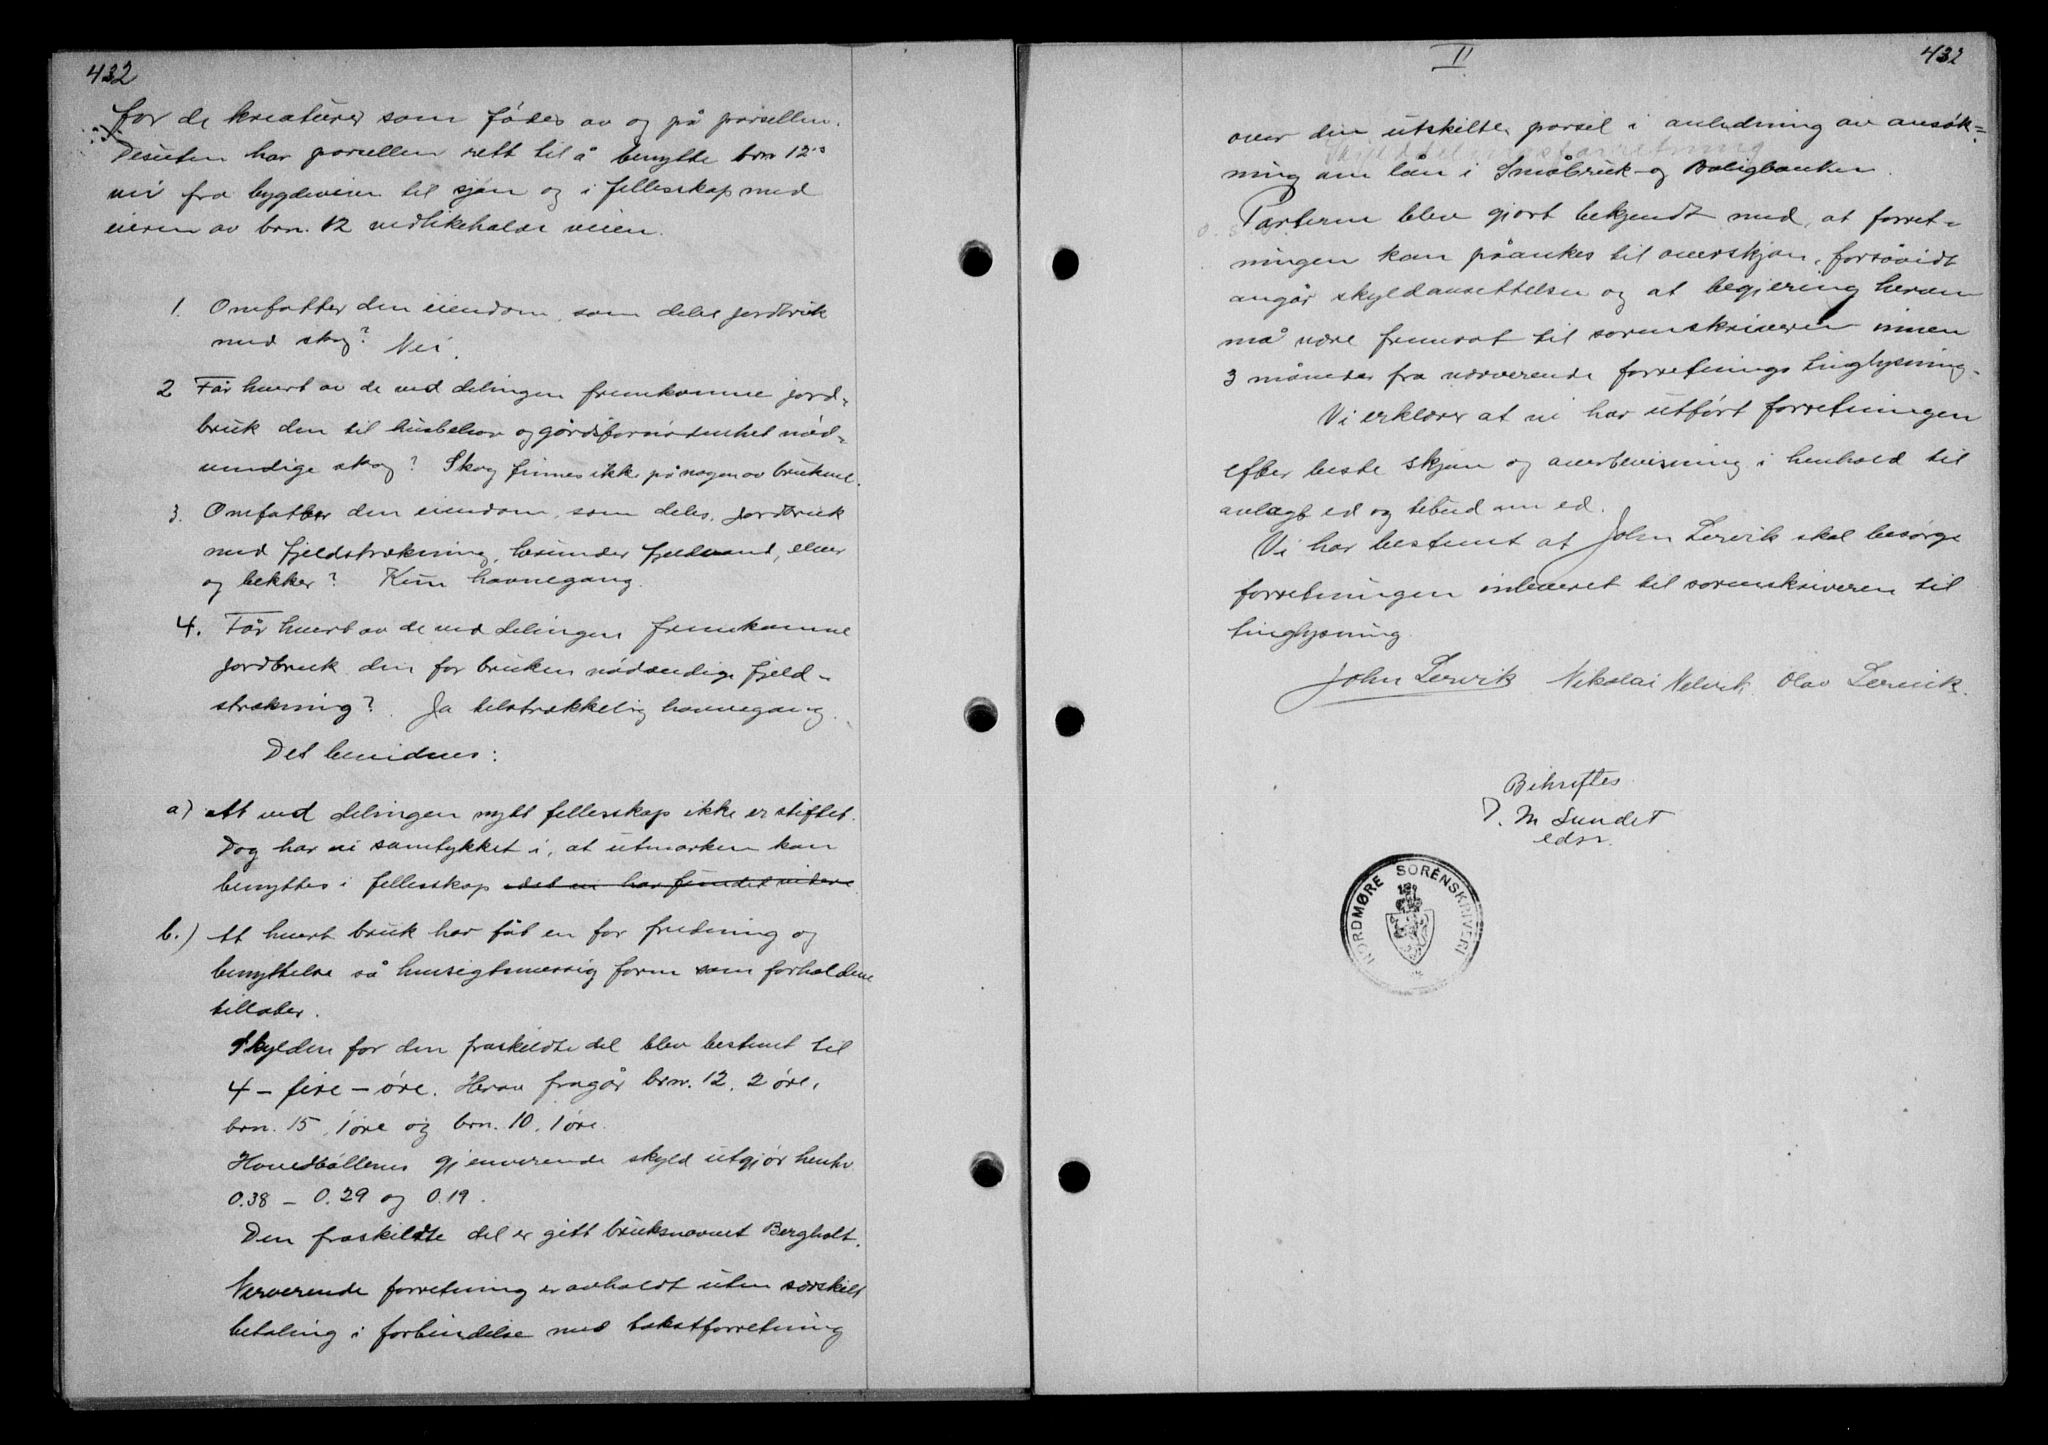 432
for de kreaturer som födes av og på parsellen.
Desuten har parsellen rett til å benytte brn 12s
vei fra bygdeveien til sjøen og i fellesskap med
eieren av brn. 12 vedlikeholde veien.
1. Omfatter den eiendom, som deles jordbruk
med skog? Nei.
2 Får hvert av de ved delingen fremkomne jord-
bruk den til husbehov og gårdsfornødenhet nød-
vendige skog? Skog finnes ikke på nogen av brukene.
3. Omfatter den eiendom, som deles, jordbruk
med fjeldstrekning, herunder fjeldvand, elver
og bekker? Kun havnegang.
4. Får hvert av de ved delingen fremkomne
jordbruk den for bruken nødvendige fjeld-
strekning? Ja tilstrekkelig havnegang.
Det bevidnes:
a) At ved delingen nytt fellesskap ikke er stiftet.
Dog har vi samtykket i, at utmarken kan
benyttes i fellesskap idet vi har fundet videre
b.) At hvert bruk har fåt en for fredning og
benyttelse så hensigtsmessig form som forholdene
tillater.
Skylden for den fraskildte del blev bestemt til
4 - fire - øre. Herav fragår brn. 12. 2 øre,
brn. 15, 1 øre og brn. 10, 1 øre.
Hovedbøllenes gjenverende skyld utgjør henhv.
0.38 - 0.29 og 0.19.
Den fraskildte del er gitt bruksnavnet Bergholt.
Nerverende forretning er avholdt uten særskilt
betaling i forbindelse med takstforretning
II
432
over den utskilte parsel i anledning av ansøk-
Skylddelingsforretning
ning om lån i Småbruk- og Boligbanken.
Parterne blev gjort bekjendt med, at forret-
ningen kan påankes til overskjøn, forsåvidt
angår skyldansettelsen og at begjering herom
må være fremsat til sorenskriveren innen
3 måneder fra nærverende forretnings tinglysning.
Vi erklærer at vi har utført forretningen
efter beste skjøn og overbevisning i henhold til
avlagt ed og tilbud om ed.
Vi har bestemt at John Lervik skal besørge
forretningen innleveret til sorenskriveren til
tinglysning.
John Lervik Nikolai Nelvik Olav Lervik.
Bekreftes
D. M Sundet
edsv.
NORDMØRE SORENSKRIVERI